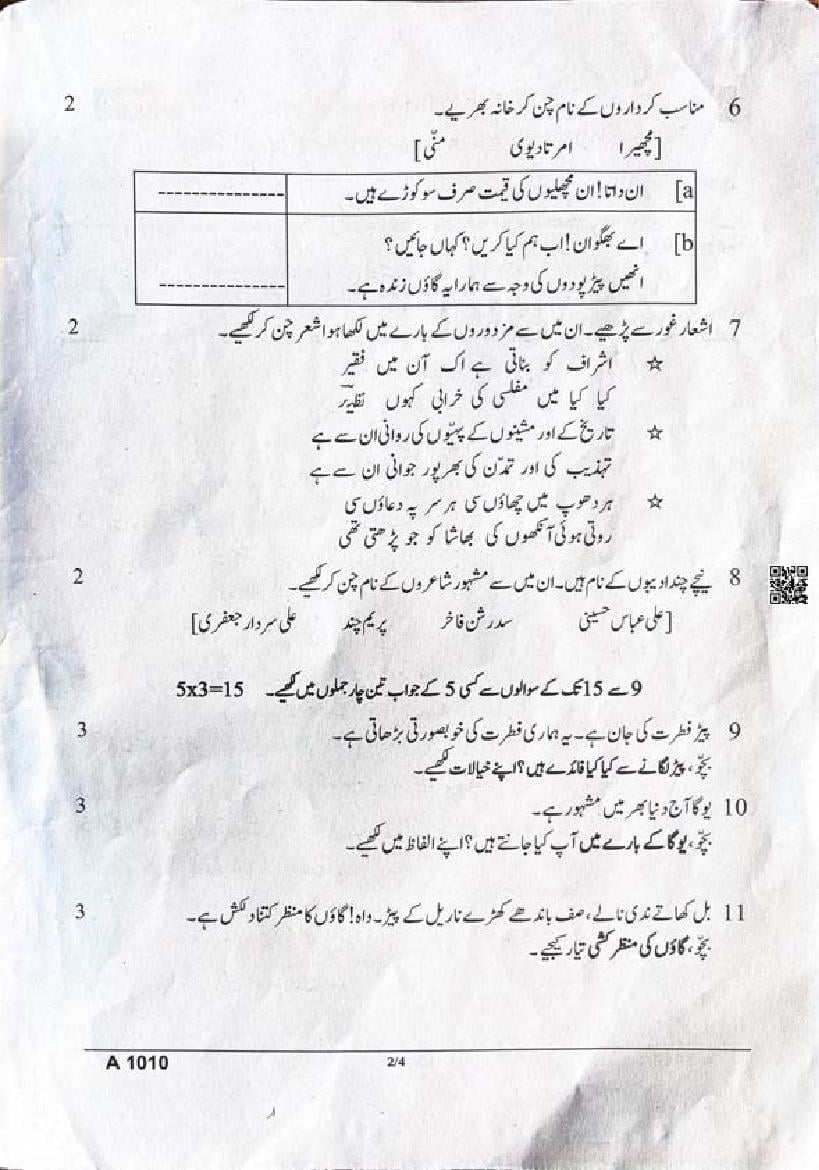 6 مناسب کرداروں کے نام چن کر خانہ بھریے۔ 2
[مچھیرا امرتادیوی منّی]
[a ان داتا! ان مچھلیوں کی قیمت صرف سو کوڑے ہیں۔ ---------------
[b اے بھگوان! اب ہم کیا کریں؟ کہاں جائیں؟
انھیں پیڑ پودوں کی وجہ سے ہمارا یہ گاؤں زندہ ہے۔ ---------------
7 اشعار غور سے پڑھیے۔ ان میں سے مزدوروں کے بارے میں لکھا ہوا شعر چن کر لکھیے۔ 2
☆ اشراف کو بناتی ہے اک آن میں فقیر
کیا کیا میں مفلسی کی خرابی کہوں نظیرؔ
☆ تاریخ کے اور مشینوں کے پہیّوں کی روانی ان سے ہے
تہذیب کی اور تمدّن کی بھرپور جوانی ان سے ہے
☆ ہر دھوپ میں چھاؤں سی ہر سر پہ دعاؤں سی
روتی ہوئی آنکھوں کی بھاشا کو جو پڑھتی تھی
8 نیچے چند ادیبوں کے نام ہیں۔ ان میں سے مشہور شاعروں کے نام چن کر لکھیے۔ 2
[علی عباس حسینی سدرشن فاخر پریم چند علی سردار جعفری]
9 سے 15 تک کے سوالوں سے کسی 5 کے جواب تین چار جملوں میں لکھیے۔ 5x3=15
9 پیڑ فطرت کی جان ہے۔ یہ ہماری فطرت کی خوبصورتی بڑھاتی ہے۔ 3
بچّو، پیڑ لگانے سے کیا کیا فائدے ہیں؟ اپنے خیالات لکھیے۔
10 یوگا آج دنیا بھر میں مشہور ہے۔ 3
بچّو، یوگا کے بارے میں آپ کیا جانتے ہیں؟ اپنے الفاظ میں لکھیے۔
11 بل کھاتے ندی نالے، صف باندھے کھڑے ناریل کے پیڑ۔ واہ! گاؤں کا منظر کتنا دلکش ہے۔ 3
بچّو، گاؤں کی منظر کشی تیار کیجیے۔
A 1010 2/4